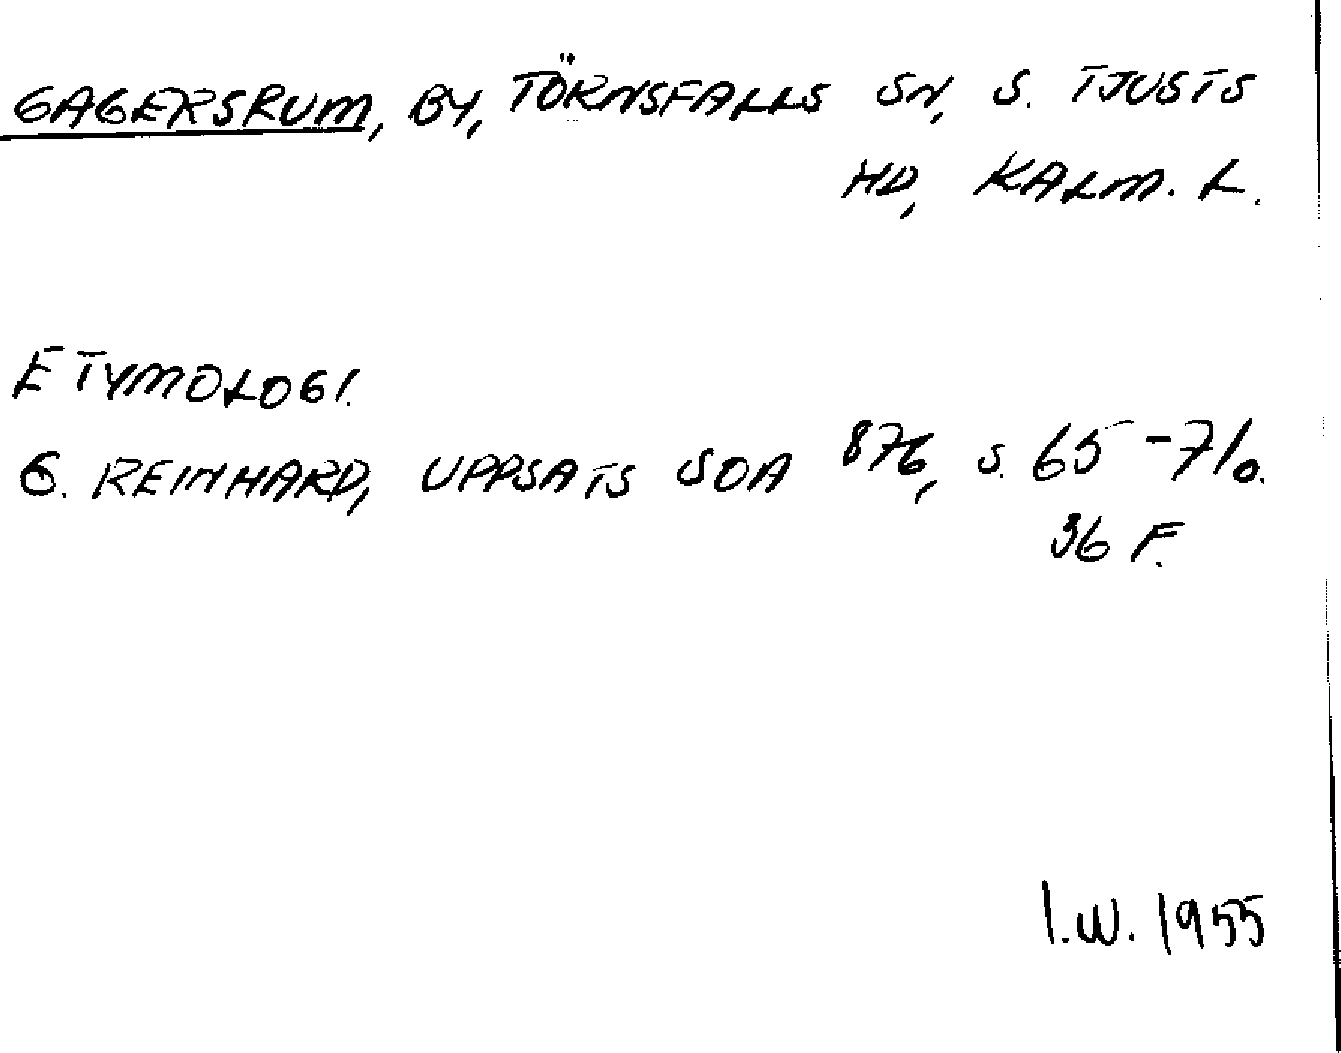 GAGERSRUM, BY, TÖRNSFALLS SN, S. TJUSTS
HD, KALM. L.
ETYMOLOGI.
G. REINHARD, UPPSATS SOA 876, S. 65-71 o.
36 F.
I.W. 1955